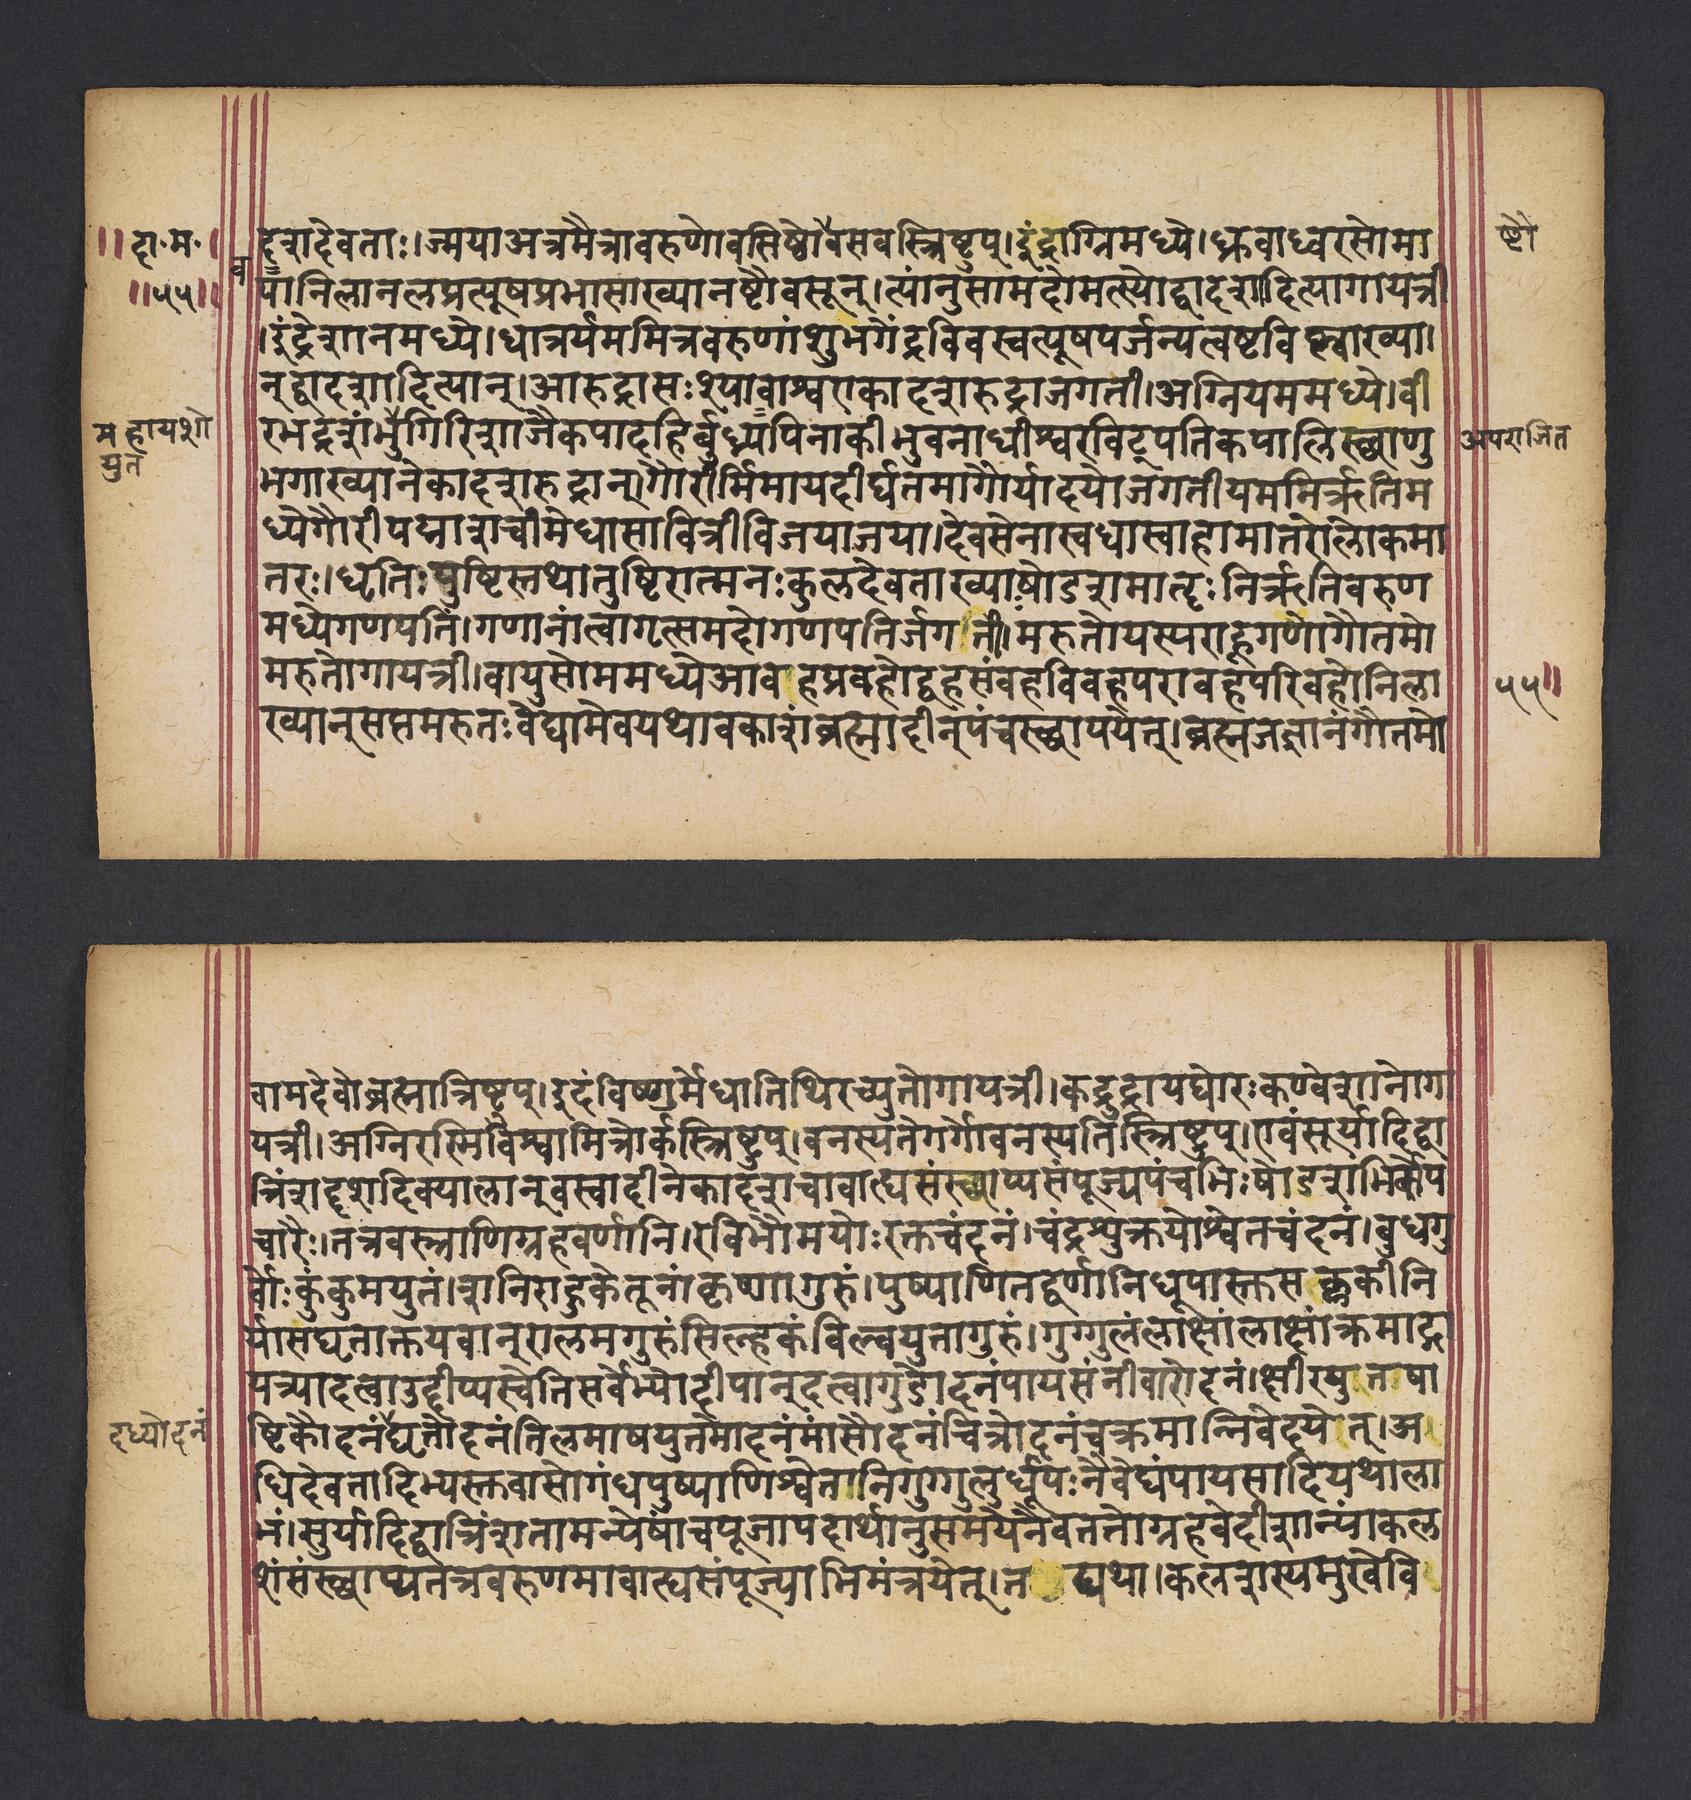 ॥दा॰म॰।
॥५५॥
व
ष्टौ
दशदेवताः।ज्मयाअत्रमैत्रावरुणोवसिष्ठोवसवस्त्रिष्टुप्।इंद्राग्निमध्ये।ध्रुवाध्वरसोमा
पानिलानलप्रत्यूषप्रभासाख्यानष्टौवसून्।त्यांनुसामंदोमत्स्योद्वादशादित्यागायत्री
।इंद्रेशानमध्ये।धात्रर्यममित्रवरुणांशुभगेंद्रविवस्वत्पूषपर्जन्यत्वष्टृविष्ण्वाख्या
न्द्वादशादित्यान्।आरुद्रासःश्यावाश्वएकादशरुद्राजगती।अग्नियममध्ये।वी
रभद्रशंभुगिरिशाजैकपादहिर्बुध्न्यपिनाकीभुवनाधीश्वरविट्पतिकपालिस्थाणु
भगाख्यानेकादशरुद्रान्।गौरीर्मिमायदीर्घतमागौर्यादयोजगतीयमनिर्ऋतिम
ध्येगौरीपद्माशचीमेधासावित्रीविजयाजया।देवसेनास्वधास्वाहामातरोलोकमा
तरः।धृतिःपुष्टिस्तथातुष्टिरात्मनःकुलदेवताख्याषोडशमातॄःनिर्ऋतिवरुण
मध्येगणपतिं।गणानांत्वागृत्समदोगणपतिर्जगती।मरुतोयस्यराहूगणोगौतमो
मरुतोगायत्री।वायुसोममध्येआवहप्रवहोद्वहसंवहविवहपरावहपरिवहोनिला
ख्यान्सप्तमरुतःवेद्यामेवयथावकाशंब्रह्मादीन्पंचस्थापयेत्।ब्रह्मजज्ञानंगौतमो
महायशो
युत
अपराजित
५५॥
वामदेवोब्रह्मात्रिष्टुप्।इदंविष्णुर्मेधातिथिरच्युतोगायत्री।कद्रुद्रायघोरःकण्वेशानोगा
यत्री।अग्निरस्मिविश्वामित्रोर्कस्त्रिष्टुप्।वनस्पतेगर्गोवनस्पतिस्त्रिष्टुप्।एवंसूर्यादिद्वा
त्रिंशद्दशदिक्पालान्वस्वादीनेकादशचावाह्यसंस्थाप्यसंपूज्यपंचभिःषोडशभिर्वोप
चारैः।तत्रवस्त्राणिग्रहवर्णानि।रविभौमयोःरक्तचंदनं।चंद्रशुक्रयोश्वेतचंदनं।बुधगु
र्वोःकुंकुमयुतं।शनिराहुकेतूनांकृष्णागुरुं।पुष्पाणितद्वर्णानिधूपास्तुसल्लकीनि
र्यासघृताक्तयवान्रालमगुरुंसिल्हकंबिल्वयुतागुरुं।गुग्गुलंलाक्षांलाक्षांक्रमाद्ग
पत्र्यादत्वाउद्दीप्यस्वेतिसर्वेभ्योदीपान्दत्वागुडोदनंपायसंनीवारोदनं।क्षीरयुतषा
ष्टिकौदनंघृतौदनंतिलमाषयुतमोदनंमांसौदनंचित्रोदनंचक्रमान्निवेदयेत्।अ
धिदेवतादिभ्यस्तुवासोगंधपुष्पाणिश्वेतानिगुग्गुलुर्धूपःनैवेद्यंपायसादियथाला
भं।सूर्यादिद्वात्रिंशतामन्येषांचपूजापदार्थानुसमयेनैवततोग्रहवेदीशान्यांकल
शंसंस्थाप्यतत्रवरुणमावाह्यसंपूज्याभिमंत्रयेत्।तद्यथा।कलशस्यमुखेवि
दध्योदनं